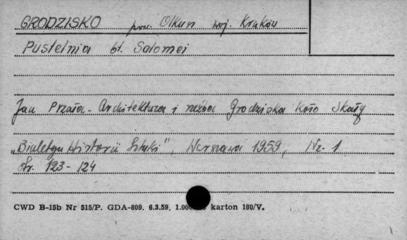 GRODZISKO pow. Olkusz woj. Kraków
Pustelnia bł. Salomei
Jan - Architektura i rzeźba Grodziska koło Skały
„Biuletyn Historii Sztuki", Warszawa 1959, Nr. 1
str. 123-124
CWD B-15b Nr 515/P. GDA-809. 6.3.59. karton 180/V.